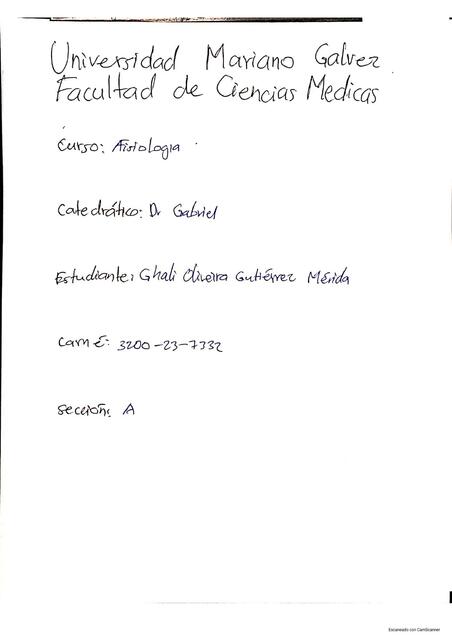 Universidad Mariano Galvez
Facultad de Ciencias Medicas
Curso: Fisiología
Catedrático: Dr Gabriel
Estudiante: Ghali Oliveira Gutiérrez Mérida
Carné: 3200-23-7332
Sección: A
Escaneado con CamScanner